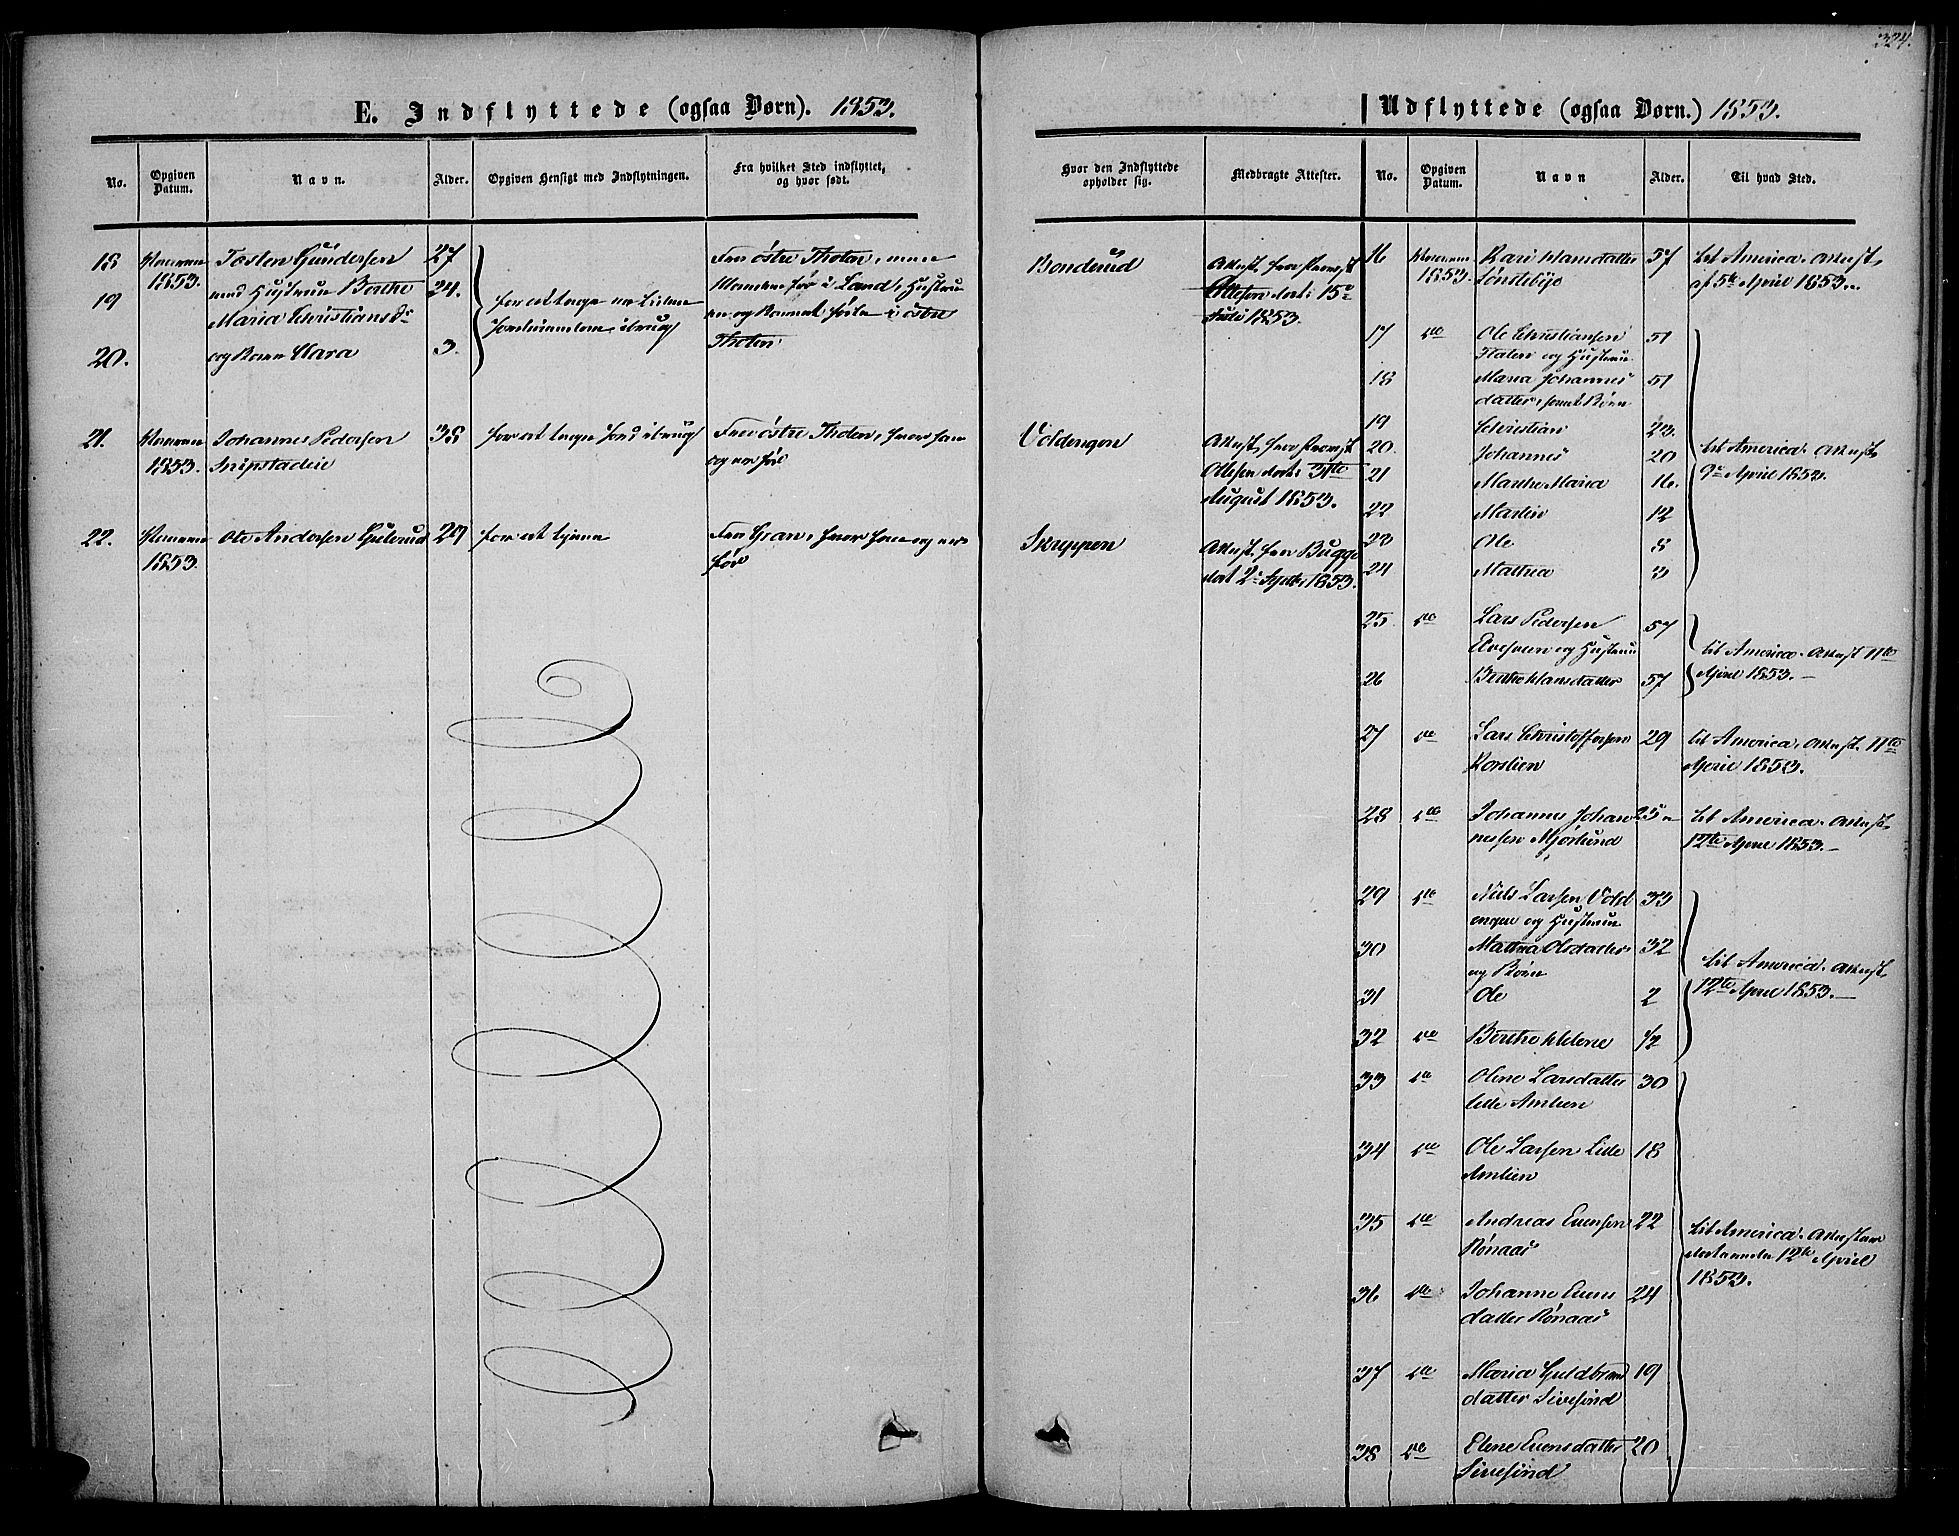 324.
E. Indflyttede (ogsaa Børn). 1853.
No.
Opgiven
Datum.
Navn.
Alder.
Opgiven Hensigt med Indflytningen.
Fra hvilket Sted indflyttet,
og hvor født.
18
1853.
Tosten Gundersen
27
Fra østre Thoten, men
19
med Hustrue Berthe
24.
Manden før i Land, Hustru
Maria Christiansdr
en og Barnet føde i østre
20.
og Barn Clara
3.
Thoten
21.
1853.
Johannes Pedersen
38
for at tage Jord i brug
Fra østre Thoten, hvor han
og er før
22.
1853.
Ole Andersen
29
for at tjene
Fra Gran, hvor han og er
før
Udflyttede (ogsaa Børn.) 1853.
Hvor den Indflyttede
opholder sig.
Medbragte Attester.
No.
Opgiven
Datum.
Navn
Alder.
Til hvad Sted.
Bonderud
Attest fra Provst
dat: 15de
Juli 1853.
Voldengen
Attest fra Provst
dat: 31te
August 1853.
Skreppen
Attest fra Bugge
dat 2 Septbr 1853.
16
1853.
Kari Hansdatter
57
til America. Attest
af 5te April 1853.
17
do
Ole Christiansen
51
og Hustrue
18
Maria Johannes
51
datter, samt Børn
19
Christian
23
20
Johannes
20
til America. Attest
21
Marthe Maria
16
9de April 1853.
22
Martin
12
23
Ole
8
24
Mathea
3
25
do
Lars Pedersen
57
og Hustrue
til America. Attest 11te
26
Berthe Hansdatter
57
April 1853.
27
do
Lars Christoffersen
29
til America. Attest 11te
Korslien
April 1853.
28
do
Johannes Johan
25
til America. Attest
nessen Mjørlund
12te April 1853.
29
do
Niels Larsen Vold
33
engen og Hustrue
30
Mathea Olsdatter
32
og Børn
til America. Attest
31
Ole
2
12te April 1853.
32
do
Berthe Helene
1/2
33
do
Olene Larsdatter
30
Lille Amlien
34
do
Ole Larsen Lille
18
Amlien
35
do
Andreas Evensen
22
til America. Attesterne
Rønaas
12te April
36
do
Johanne Evens
24
1853.
datter Rønaas
37
do
Maria Guldbrands
19
datter Sivesind
38
do
Elene Evensdatter
20
Sivesind